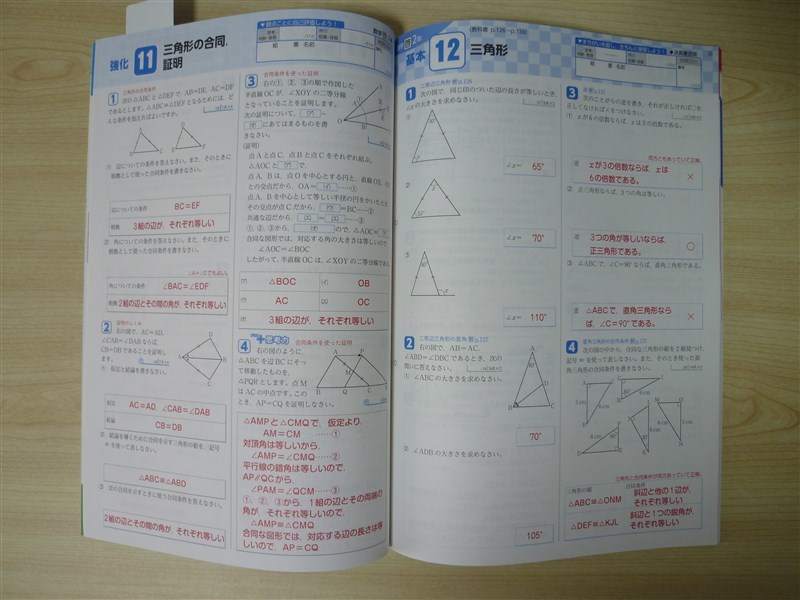 強化 11 三角形の合同,
証明
組 番 名前
1 三角形の合同条件
右の△ABCと△DEFで, AB=DE, AC=DF
であるとします。△ABC≡△DEFとなるためには, ど
んな条件を加えればよいですか。
① 辺についての条件を答えなさい。また, そのときに
根拠として使った合同条件を書きなさい。
辺についての条件 BC=EF
根拠 3組の辺が, それぞれ等しい
② 角についての条件を答えなさい。また, そのときに
根拠として使った合同条件を書きなさい。
角についての条件 ∠BAC=∠EDF
根拠 2組の辺とその間の角が, それぞれ等しい
2 証明のしくみ
右の図で, AC=AD,
∠CAB=∠DABならば
CB=DBであることを証明し
ます。
① 仮定と結論を書きなさい。
仮定 AC=AD, ∠CAB=∠DAB
結論 CB=DB
② 結論を導くために合同を示す三角形の組を, 記号
≡を使って表しなさい。
△ABC≡△ABD
③ ②の合同を示すときに使う合同条件を答えなさい。
2組の辺とその間の角が, それぞれ等しい
3 合同条件を使った証明
右の①, ②, ③の順で作図した
半直線OCが, ∠XOYの二等分線
となっていることを証明します。
次の証明について, (ア)~
にあてはまるものを書
きなさい。
(証明)
点Aと点C, 点Bと点Cをそれぞれ結ぶ。
△AOCと (ア) で,
点A, Bは, 点Oを中心とする円と, 直線OX,
との交点だから, OA= (イ) ……①
点A, Bを中心として等しい半径の円をかいたとき
その交点が点Cだから, (ウ) =BC……②
共通な辺だから,
①, ②, ③から, ので, △AOC≡
合同な図形では, 対応する角の大きさは等しいので,
∠AOC=∠BOC
したがって, 半直線OCは, ∠XOYの二等分線である。
(ア) △BOC (イ) OB
(ウ) AC (エ) OC
(オ) 3組の辺が, それぞれ等しい
4 +思考力 合同条件を使った証明
右の図のように,
△ABCを辺BCにそっ
て移動したものを,
△PQRとします。点M
はACの中点です。このと
き, AP=CQを証明しなさい。
△AMPと△CMQで, 仮定より,
AM=CM ……①
対頂角は等しいから,
∠AMP=∠CMQ ……②
平行線の錯角は等しいので,
AP//QCから,
∠PAM=∠QCM ……③
①, ②, ③から, 1組の辺とその両端の
角が, それぞれ等しいので,
△AMP≡△CMQ
合同な図形では, 対応する辺の長さは等
しいので, AP=CQ
2年
基本 12 三角形
(教科書 p.126~p.138)
組 番 名前
1 二等辺三角形の角
次の図で, 同じ印のついた辺の長さが等しいとき,
∠xの大きさを求めなさい。
①
∠x= 65°
②
∠x= 70°
③
∠x= 110°
2
右の図で, AB=AC,
∠ABD=∠DBCであるとき, 次の
問いに答えなさい。
① ∠ABCの大きさを求めなさい。
70°
② ∠ADBの大きさを求めなさい。
105°
3
次のことがらの逆を書き, それが正しければ○を,
正しくなければ×をつけなさい。
① xが6の倍数ならば, xは3の倍数である。
両方ともあっていて正解。
逆 xが3の倍数ならば, xは
6の倍数である。 ×
② 正三角形ならば, 3つの角は等しい。
逆 3つの角が等しいならば,
正三角形である。 ○
③ △ABCで, ∠C=90°ならば, 直角三角形である。
逆 △ABCで, 直角三角形なら
ば, ∠C=90°である。 ×
4
次の図の中から, 合同な三角形の組を2組見つけ,
記号≡を使って表しなさい。また, そのとき使った直
角三角形の合同条件を書きなさい。
三角形と合同条件が両方あっていて正解。
三角形の組 合同条件
△ABC≡△ONM 斜辺と他の1辺が,
それぞれ等しい
△DEF≡△KJL 斜辺と1つの鋭角が,
それぞれ等しい